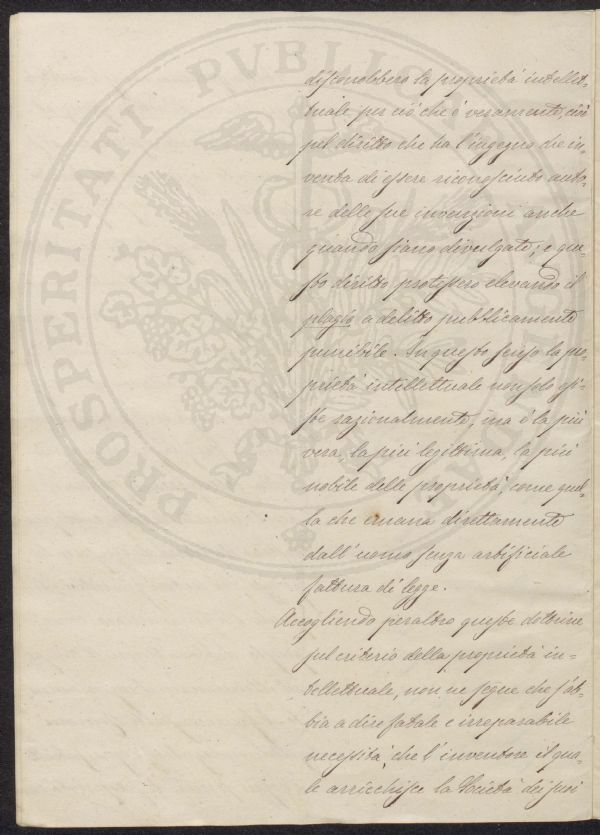 PROSPERITATI PVBLICAE
disconobbero la proprietà intellet-
tuale per ciò che è veramente, cioè
pel diritto che ha l'ingegno che in-
venta di essere riconosciuto auto-
re delle sue invenzioni anche
quando siano divulgate; e que-
sto diritto protessero elevando il
plagio a delitto pubblicamente
punibile. In questo senso la pro-
prietà intillettuale non solo esi-
ste razionalmente, ma è la più
vera, la più legittima, la più
nobile delle proprietà, come quel-
la che emana direttamente
dall'uomo senza artificiale
fattura di legge.
Accogliendo peraltro queste dottrine
sul criterio della proprietà in-
tellettuale, non ne segue che s'ab-
bia a dire fatale e irreparabile
necessità, che l'inventore il qua-
le arricchisce la Società dei suoi